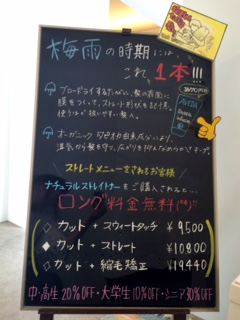 梅雨の時期には
これ1本!!!
ブロードライするたびに、髪の表面に
膜をつくって、ストレート形状を記憶。
使うほど扱いやすい髪へ。
オーガニックタピオカ由来成分により
湿気から髪を守り、広がりを抑えなめらかさキープ。
ストレートメニューをされるお客様
ナチュラルストレイトナーをご購入されたら…
ロング料金無料(^^)!!
カット + スウィートタッチ ¥9500
カット + ストレート ¥10800
カット + 縮毛矯正 ¥19440
中・高生20%OFF・大学生10%OFF・シニア30%OFF